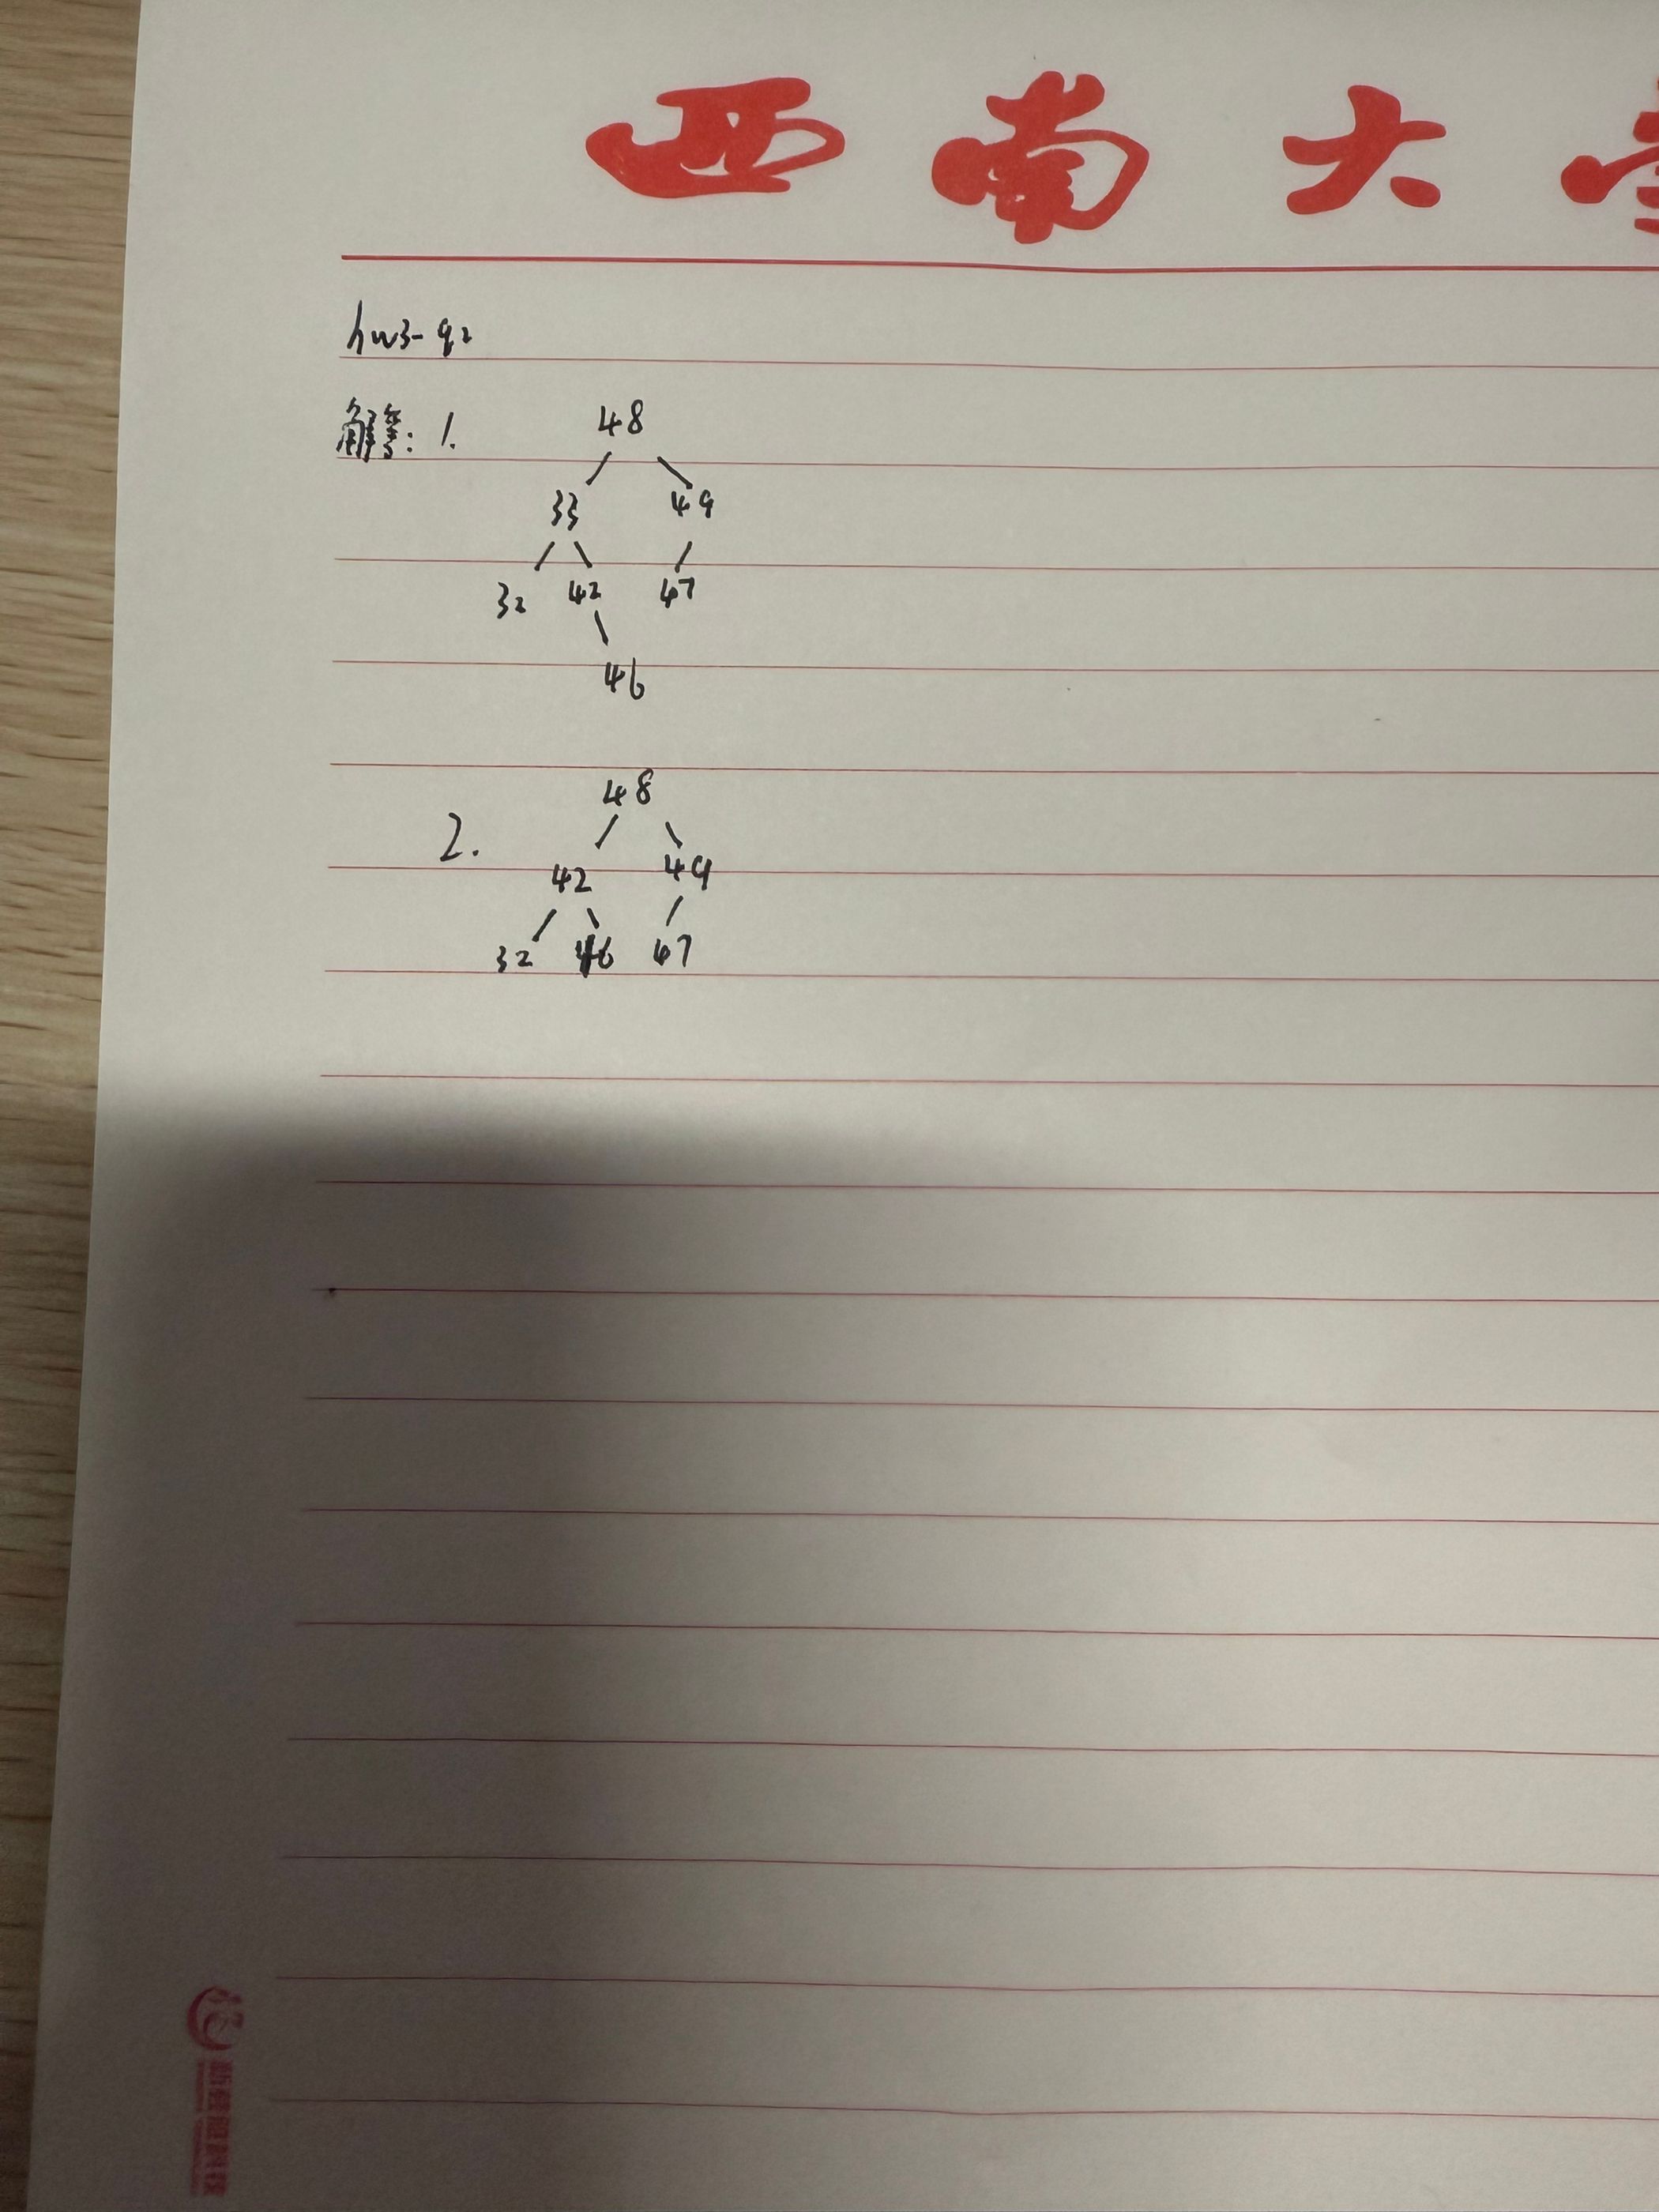 西南大
hw3-q2
解答: 1.
48
33 49
32 42 47
46
2.
48
42 49
32 46 47